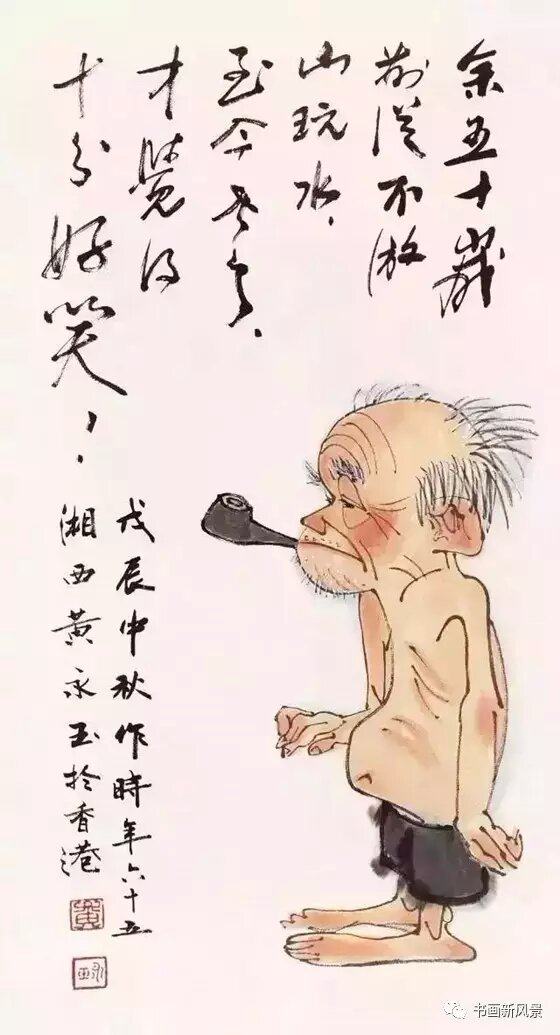 余五十歲
前從不游
山玩水，
至今老了，
才覺得
十分好笑！
戊辰中秋作時年六十五
湘西黃永玉於香港
黃
书画新风景